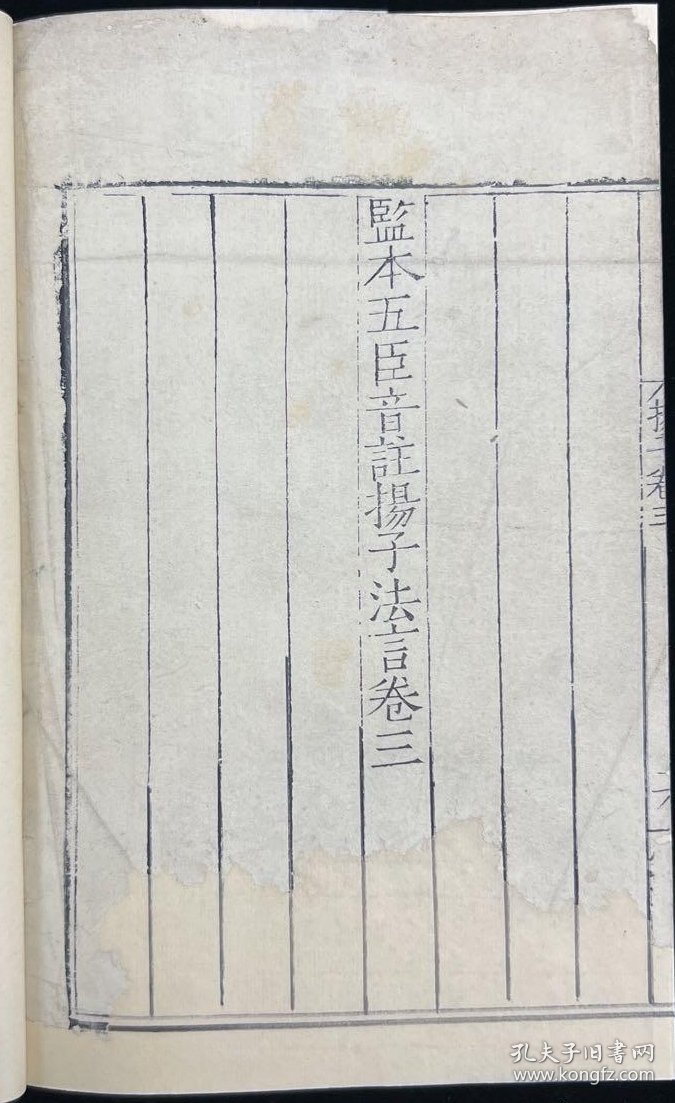 揚子卷三
監本五臣音註揚子法言卷三
孔夫子旧书网
www.kongfz.com